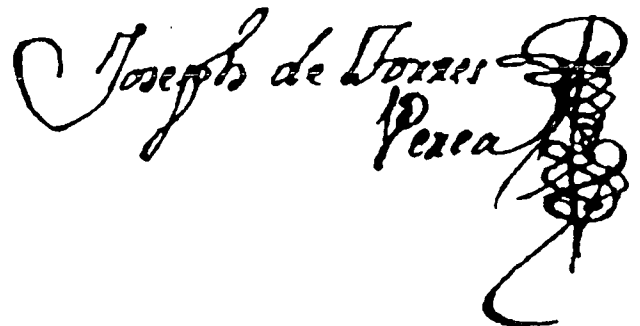 Joseph de Torres
Perea